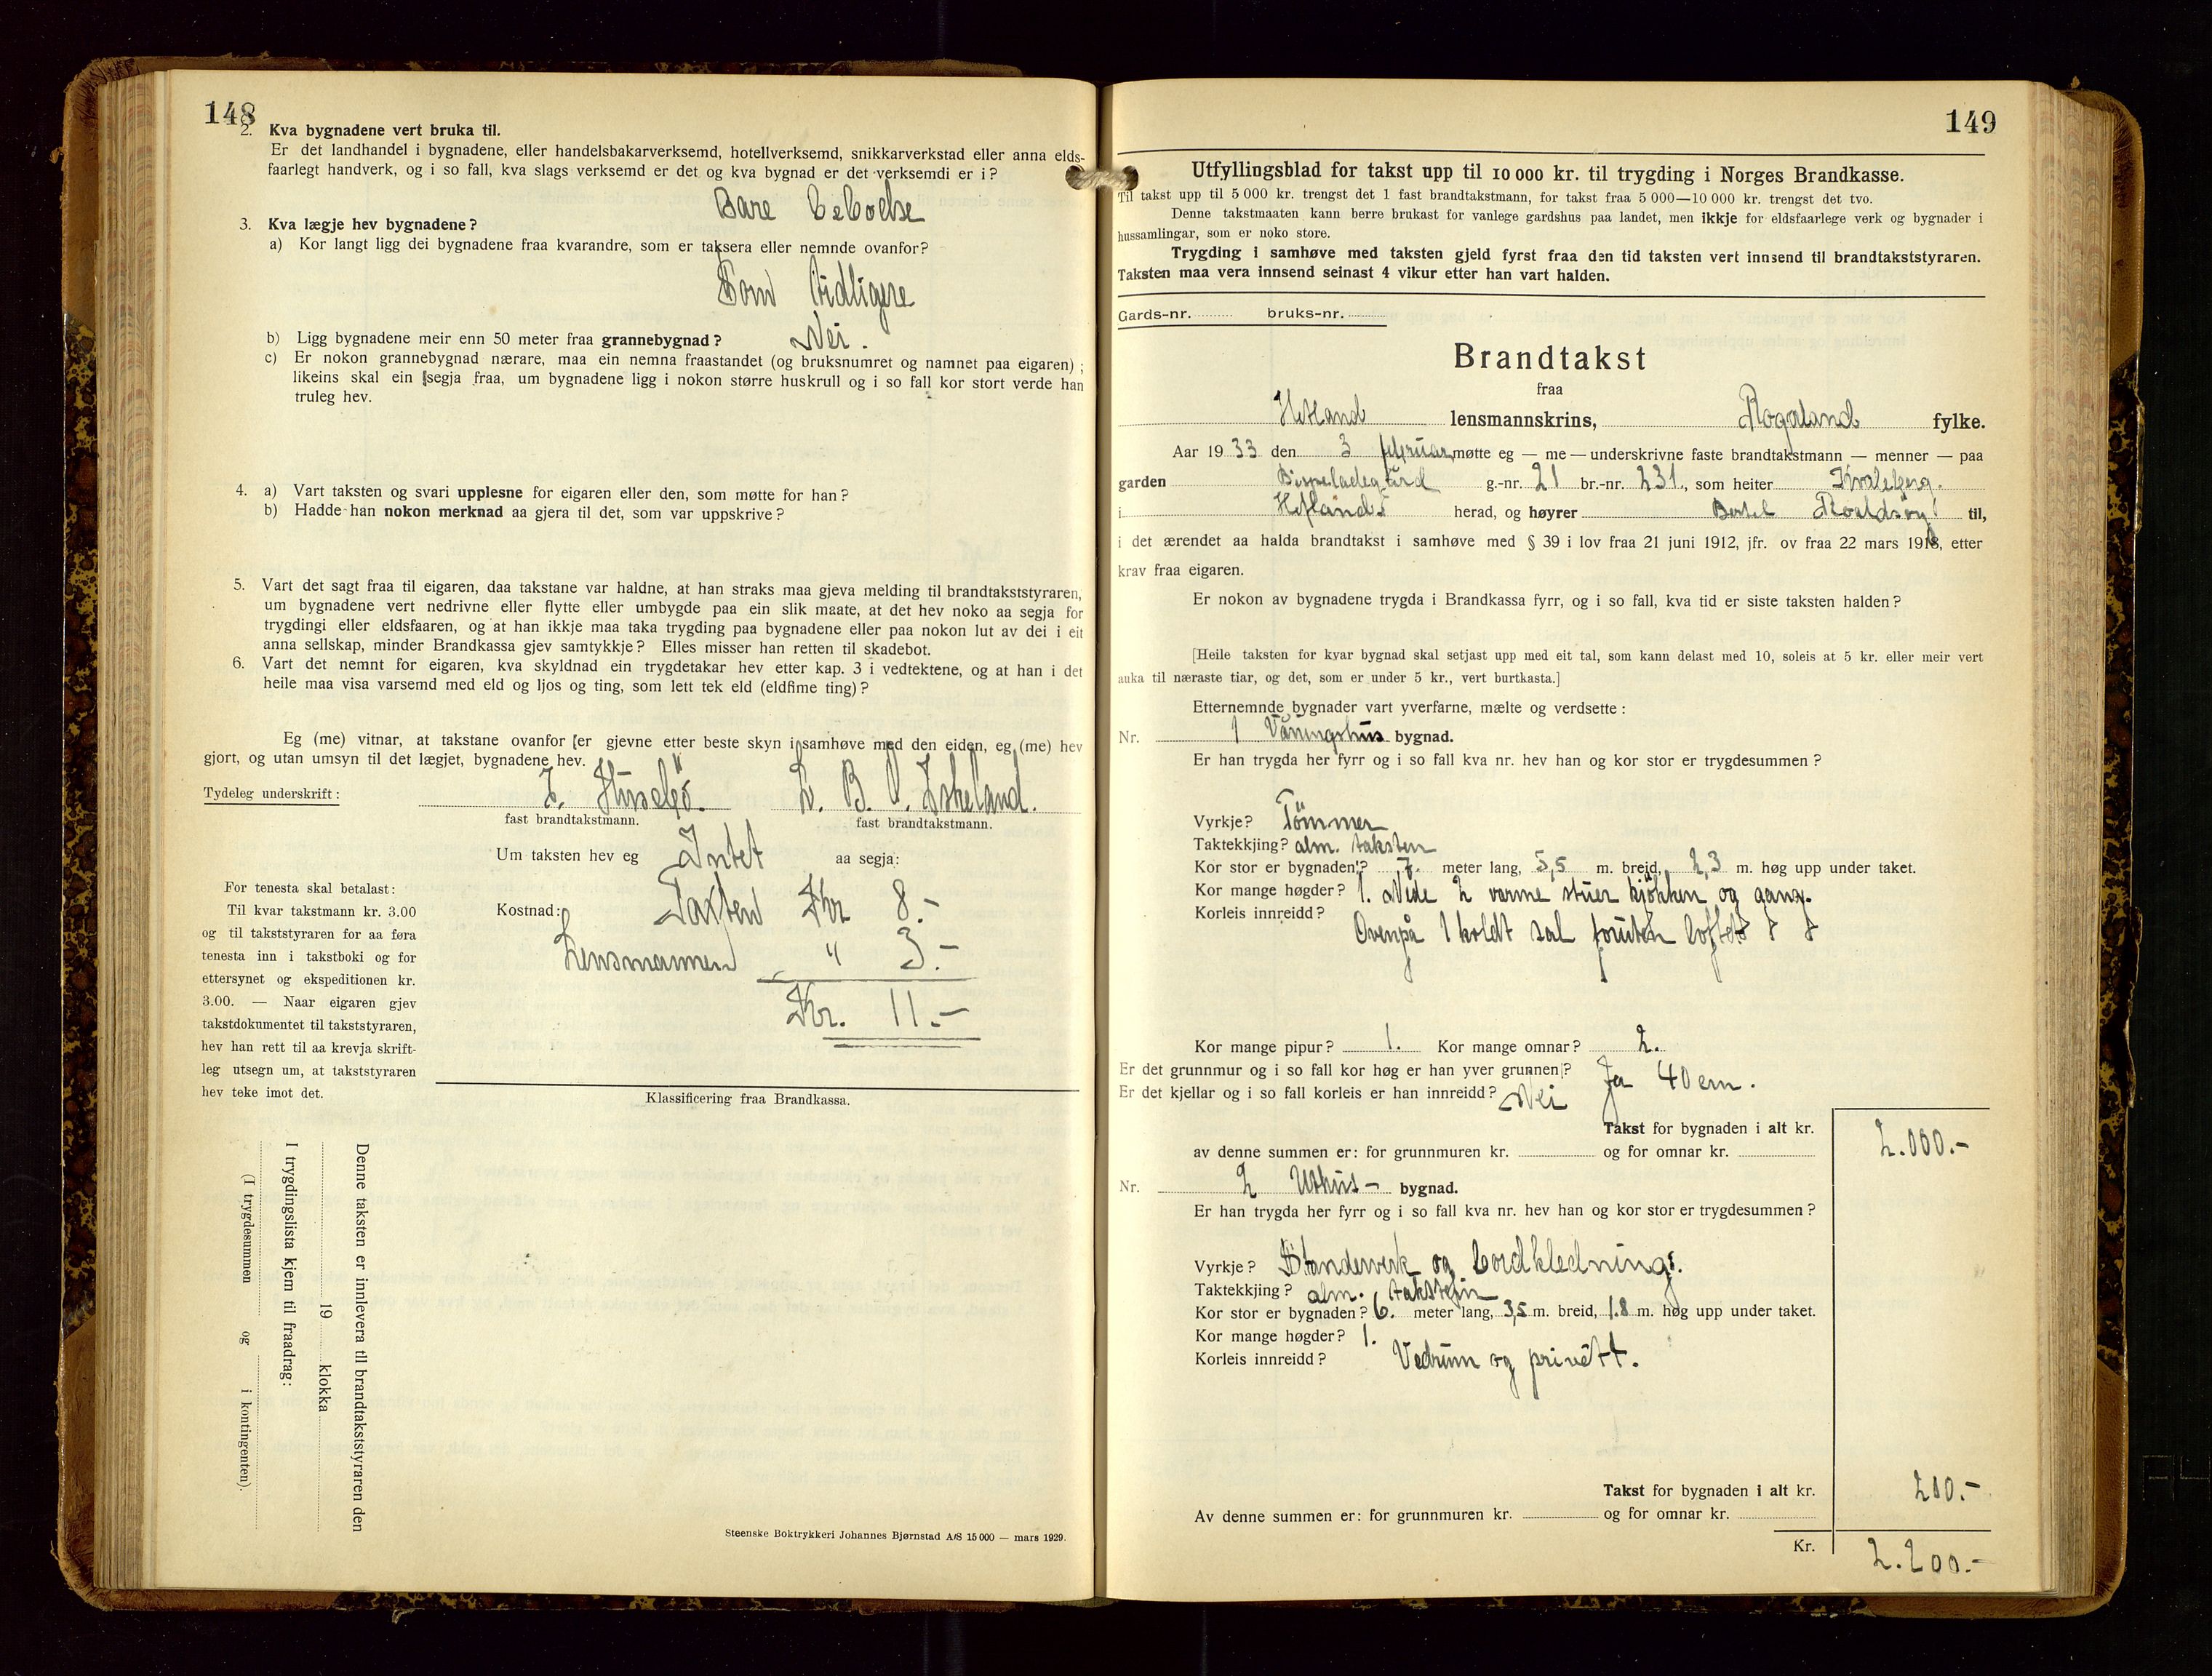 148
2. Kva bygnadene vert bruka til.
Er det landhandel i bygnadene, eller handelsbakarverksemd, hotellverksemd, snikkarverkstad eller anna elds-
faarlegt handverk, og i so fall, kva slags verksemd er det og kva bygnad er det verksemdi er i?
Bare beboelse
3. Kva lægje hev bygnadene?
a) Kor langt ligg dei bygnadene fraa kvarandre, som er taksera eller nemnde ovanfor?
Som tidligere
b) Ligg bygnadene meir enn 50 meter fraa grannebygnad? Nei.
c) Er nokon grannebygnad nærare, maa ein nemna fraastandet (og bruksnumret og namnet paa eigaren);
likeins skal ein segja fraa, um bygnadene ligg i nokon større huskrull og i so fall kor stort verde han
truleg hev.
4. a) Vart taksten og svari upplesne for eigaren eller den, som møtte for han?
b) Hadde han nokon merknad aa gjera til det, som var uppskrive?
5. Vart det sagt fraa til eigaren, daa takstane var haldne, at han straks maa gjeva melding til brandtakststyraren,
um bygnadene vert nedrivne eller flytte eller umbygde paa ein slik maate, at det hev noko aa segja for
trygdingi eller eldsfaaren, og at han ikkje maa taka trygding paa bygnadene eller paa nokon lut av dei i eit
anna sellskap, minder Brandkassa gjev samtykkje? Elles misser han retten til skadebot.
6. Vart det nemnt for eigaren, kva skyldnad ein trygdetakar hev etter kap. 3 i vedtektene, og at han i det
heile maa visa varsemd med eld og ljos og ting, som lett tek eld (eldfime ting)?
Eg (me) vitnar, at takstane ovanfor er gjevne etter beste skyn i samhøve med den eiden, eg (me) hev
gjort, og utan umsyn til det lægjet, bygnadene hev.
Tydeleg underskrift: I. Husebø. L. B. O. Iskeland.
fast brandtakstmann. fast brandtakstmann.
Um taksten hev eg Intet aa segja:
For tenesta skal betalast:
Til kvar takstmann kr. 3.00
og til takststyraren for aa føra
tenesta inn i takstboki og for
ettersynet og ekspeditionen kr.
3.00. — Naar eigaren gjev
takstdokumentet til takststyraren,
hev han rett til aa krevja skrift-
leg utsegn um, at takststyraren
hev teke imot det.
Kostnad: Taxten Kr 8.-
Lensmannen " 3.-
Kr. 11.-
Klassificering fraa Brandkassa.
Denne taksten er innlevera til brandtakststyraren den
19 klokka
I trygdingslista kjem til fraadrag:
(I trygdesummen og i kontingenten).
Steenske Boktrykkeri Johannes Bjørnstad A/S 15 000 — mars 1929.
149
Utfyllingsblad for takst upp til 10 000 kr. til trygding i Norges Brandkasse.
Til takst upp til 5 000 kr. trengst det 1 fast brandtakstmann, for takst fraa 5 000—10 000 kr. trengst det tvo.
Denne takstmaaten kann berre brukast for vanlege gardshus paa landet, men ikkje for eldsfaarlege verk og bygnader i
hussamlingar, som er noko store.
Trygding i samhøve med taksten gjeld fyrst fraa den tid taksten vert innsend til brandtakststyraren.
Taksten maa vera innsend seinast 4 vikur etter han vart halden.
Gards-nr. bruks-nr.
Brandtakst
fraa
Hetland lensmannskrins, Rogaland fylke.
Aar 1933 den 3 februar møtte eg — me — underskrivne faste brandtakstmann — menner — paa
garden Bispeladegård g.-nr. 21 br.-nr. 231., som heiter Kvaleberg.
i Hetland herad, og høyrer Bertel Roaldsøy til,
i det ærendet aa halda brandtakst i samhøve med § 39 i lov fraa 21 juni 1912, jfr. ov fraa 22 mars 1918, etter
krav fraa eigaren.
Er nokon av bygnadene trygda i Brandkassa fyrr, og i so fall, kva tid er siste taksten halden?
[Heile taksten for kvar bygnad skal setjast upp med eit tal, som kann delast med 10, soleis at 5 kr. eller meir vert
auka til næraste tiar, og det, som er under 5 kr., vert burtkasta.]
Etternemnde bygnader vart yverfarne, mælte og verdsette:
Nr. 1 Våningshus bygnad.
Er han trygda her fyrr og i so fall kva nr. hev han og kor stor er trygdesummen?
Vyrkje? Tömmer
Taktekkjing? alm. taksten
Kor stor er bygnaden? 7. meter lang, 5,5 m. breid, 2,3 m. høg upp under taket.
Kor mange høgder? 1. Nede 2 varme stuer kjökken og gang.
Korleis innreidd?
Ovenpå 1 koldt sal foruten loftet
Kor mange pipur? 1. Kor mange omnar? 2.
Er det grunnmur og i so fall kor høg er han yver grunnen? Ja 40 cm.
Er det kjellar og i so fall korleis er han innreidd? Nei
Takst for bygnaden i alt kr. 2.000.-
av denne summen er: for grunnmuren kr. og for omnar kr.
Nr. 2 Uthus - bygnad.
Er han trygda her fyrr og i so fall kva nr. hev han og kor stor er trygdesummen?
Vyrkje? Standerverk og bordkledning.
Taktekkjing? alm. takstein
Kor stor er bygnaden? 6. meter lang, 3,5 m. breid, 1.8 m. høg upp under taket.
Kor mange høgder? 1.
Korleis innreidd? Vedrum og privétt.
Takst for bygnaden i alt kr. 200.-
Av denne summen er: for grunnmuren kr. og for omnar kr.
Kr. 2.200.-